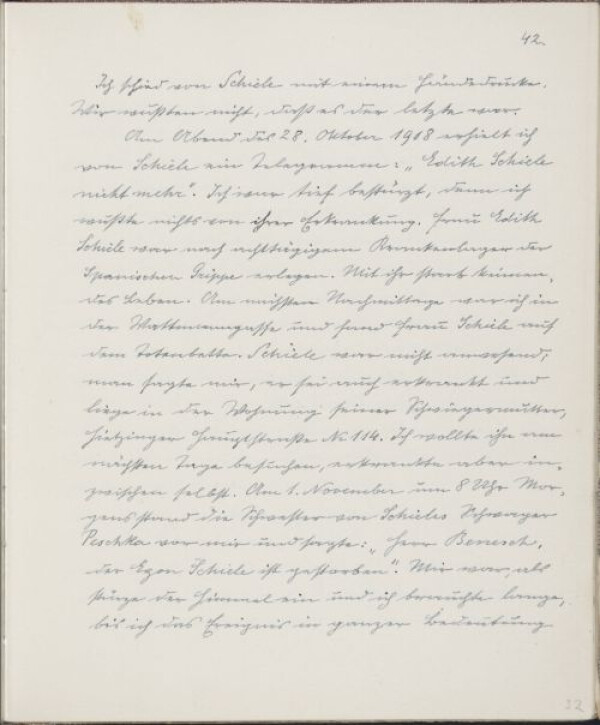 42.
Ich schied von Schiele mit einem Händedrucke.
Wir wußten nicht, daß es der letzte war.
Am Abend des 28. Oktober 1918 erhielt ich
von Schiele ein Telegramm: „Edith Schiele
nicht mehr". Ich war tief bestürzt, denn ich
wußte nichts von ihrer Erkrankung. Frau Edith
Schiele war nach achttägigem Krankenlager der
Spanischen Grippe erlegen. Mit ihr starb keimen-
des Leben. Am nächsten Nachmittage war ich in
der Wattmanngasse und fand Frau Schiele auf
dem Totenbette. Schiele war nicht anwesend;
man sagte mir, er sei auch erkrankt und
liege in der Wohnung seiner Schwiegermutter,
Hietzinger Hauptstraße № 114. Ich wollte ihn am
nächsten Tage besuchen, erkrankte aber in-
zwischen selbst. Am 1. November um 8 Uhr Mor-
gens stand die Schwester von Schieles Schwager
Peschka vor mir und sagte: „Herr Benesch,
der Egon Schiele ist gestorben". Mir war, als
stürze der Himmel ein und ich brauchte lange,
bis ich das Ereignis in ganzer Bedeutung